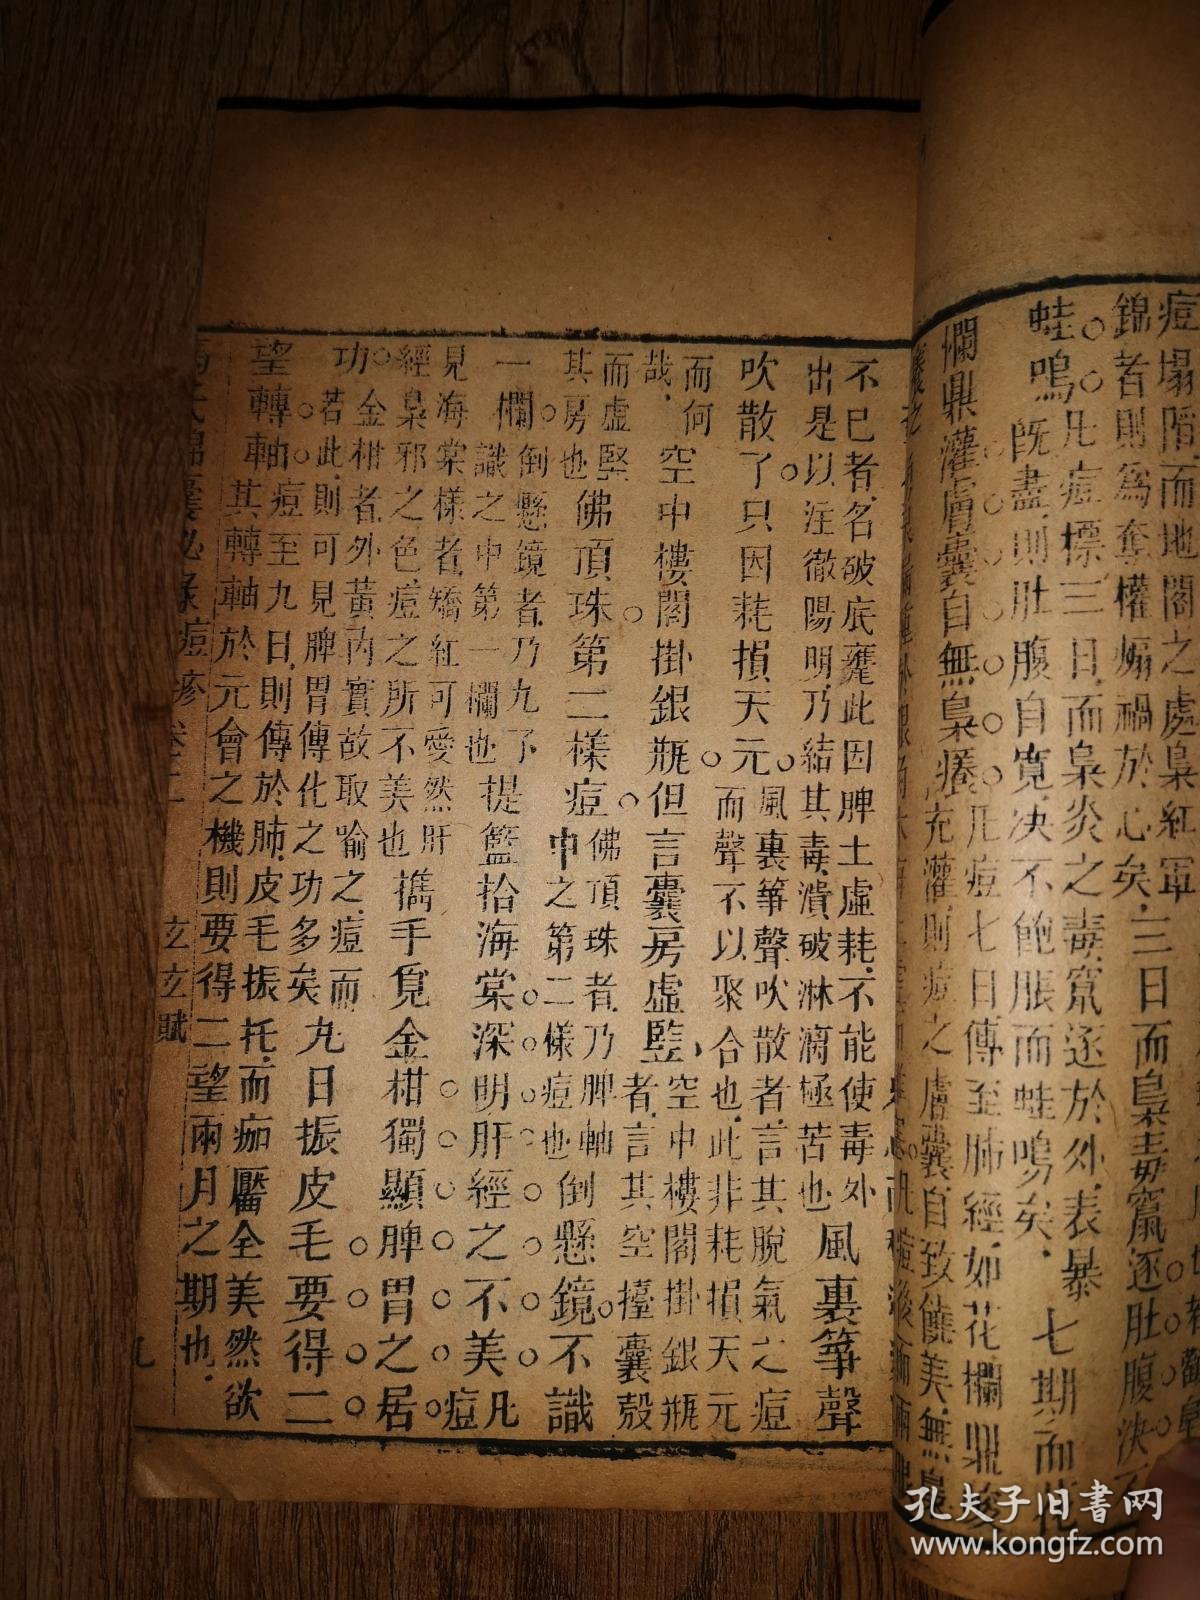 痘塌陷而地閣之處梟紅罩
錦者則為奪權煽禍於心矣三日而梟毒竄逐肚腹決不
凡痘標三日而梟炎之毒竄逐於外表暴
蛙鳴既盡則肚腹自寬決不飽脹而蛙鳴矣 七期而花
凡痘七日傳至肺經如花欄鼎峻
欄鼎灌膚囊自無梟癢充灌則痘之膚囊自致饒美無梟
不已者名破底癰此因脾土虛耗不能使毒外
出是以注徹陽明乃結其毒潰破淋漓極苦也
風裏箏聲
吹散了只因耗損天元
風裏箏聲吹散者言其脫氣之痘
而聲不以聚合也此非耗損天元
而何
哉
空中樓閣掛銀瓶但言囊房虛豎
空中樓閣掛銀瓶
者言其空擡囊殼
而虛豎
其房也
佛頂珠第二樣痘
佛頂珠者乃脾軸
中之第二樣痘也
倒懸鏡不識
一欄
倒懸鏡者乃九不
識之中第一欄也
提籃拾海棠深明肝經之不美
凡痘
見海棠樣者矯紅可愛然肝
經梟邪之色痘之所不美也
擕手覓金柑獨顯脾胃之居
功
金柑者外黃內實故取喻之痘而
若此則可見脾胃傳化之功多矣
九日振皮毛要得二
望轉軸
痘至九日則傳於肺皮毛振托而痂靨全美然欲
其轉軸於元會之機則要得二望兩月之期也
馮氏錦囊秘錄痘疹卷十二 玄玄賦 九
孔夫子旧書网
www.kongfz.com